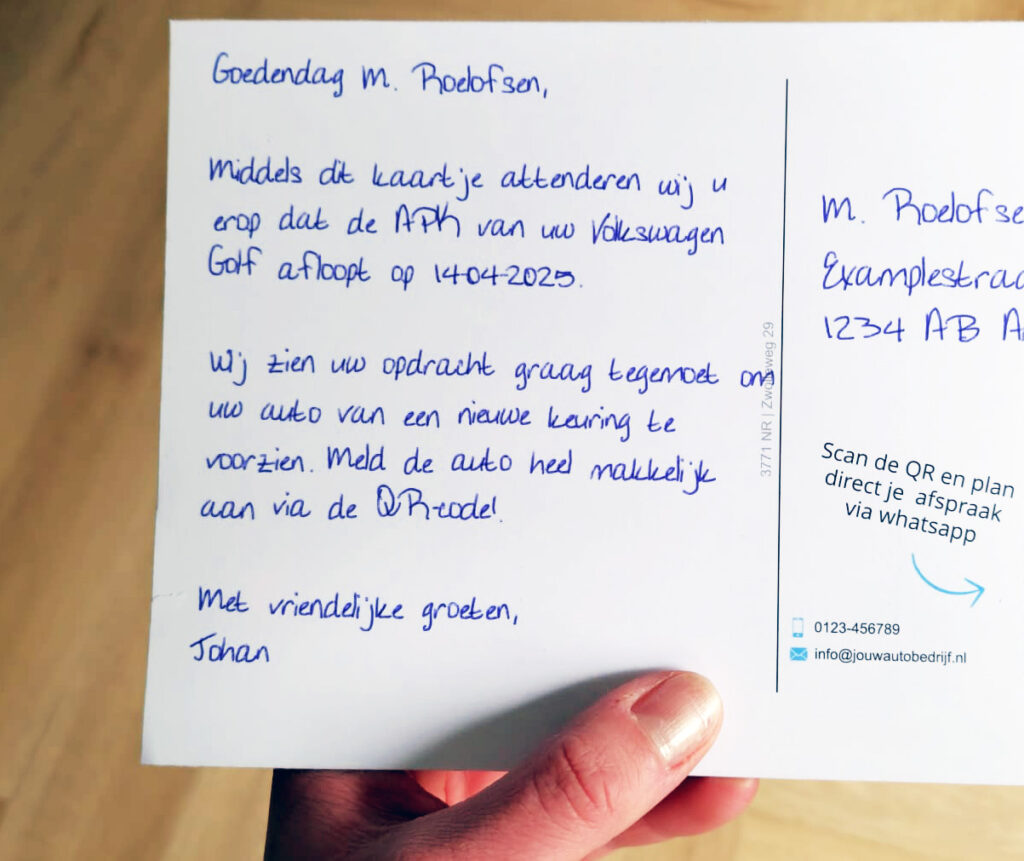 Goedendag M. Roelofsen,
Middels dit kaartje attenderen wij u
erop dat de APK van uw Volkswagen
Golf afloopt op 14-04-2025.
Wij zien uw opdracht graag tegemoet om
uw auto van een nieuwe keuring te
voorzien. Meld de auto heel makkelijk
aan via de QR-code!
Met vriendelijke groeten,
Johan
3771 NR | Zwolseweg 29
M. Roelofse
Examplestraa
1234 AB A
Scan de QR en plan
direct je afspraak
via whatsapp
0123-456789
info@jouwautobedrijf.nl